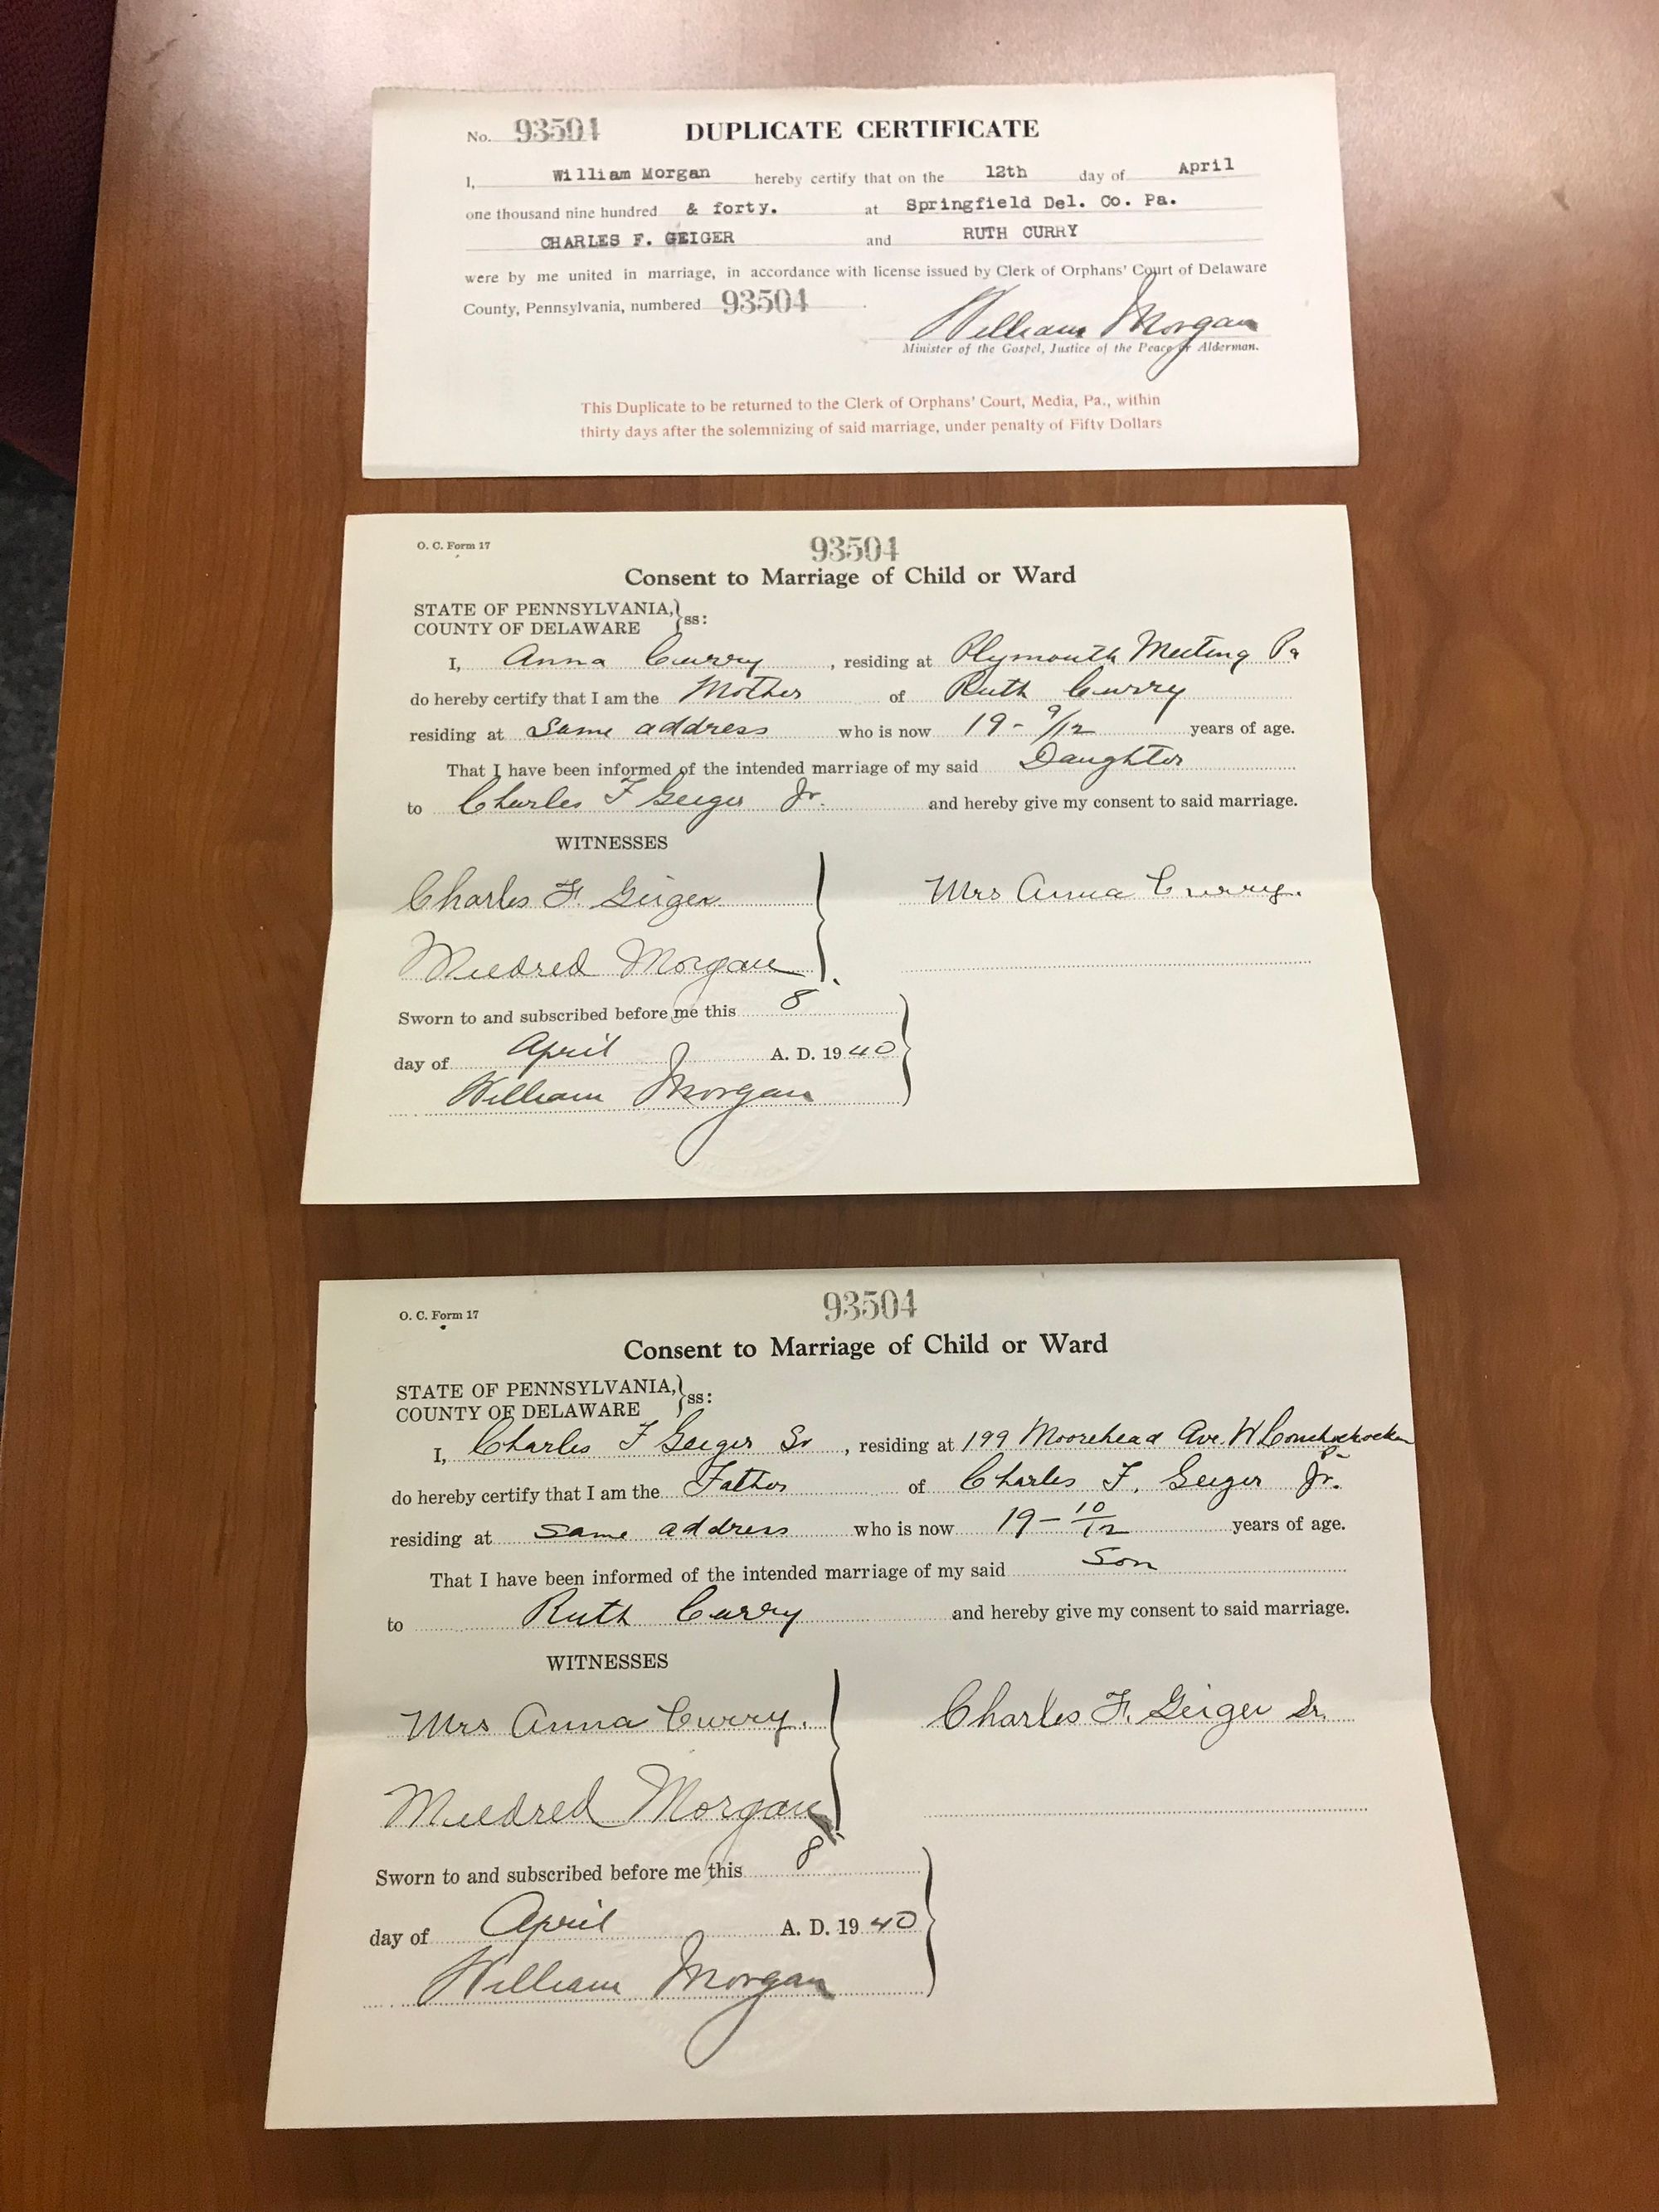 No. 93504 DUPLICATE CERTIFICATE
I, William Morgan hereby certify that on the 12th day of April
one thousand nine hundred & forty. at Springfield Del. Co. Pa.
CHARLES F. GEIGER and RUTH CURRY
were by me united in marriage, in accordance with license issued by Clerk of Orphans' Court of Delaware
County, Pennsylvania, numbered 93504
William Morgan
Minister of the Gospel, Justice of the Peace or Alderman.
This Duplicate to be returned to the Clerk of Orphans' Court, Media, Pa., within
thirty days after the solemnizing of said marriage, under penalty of Fifty Dollars
O. C. Form 17
93504
Consent to Marriage of Child or Ward
STATE OF PENNSYLVANIA,
COUNTY OF DELAWARE } ss:
I, Anna Curry, residing at Plymouth Meeting Pa
do hereby certify that I am the Mother of Ruth Curry
residing at Same address who is now 19 - 9/12 years of age.
That I have been informed of the intended marriage of my said Daughter
to Charles F Geiger Jr. and hereby give my consent to said marriage.
WITNESSES
Charles F. Geiger Mrs Anna Curry.
Mildred Morgan
Sworn to and subscribed before me this 8
day of April A. D. 1940
William Morgan
O. C. Form 17
93504
Consent to Marriage of Child or Ward
STATE OF PENNSYLVANIA,
COUNTY OF DELAWARE } ss:
I, Charles F Geiger Sr, residing at 199 Moorehead Ave. W Conshohocken
Pa
do hereby certify that I am the Father of Charles F. Geiger Jr.
residing at same address who is now 19 - 10/12 years of age.
That I have been informed of the intended marriage of my said Son
to Ruth Curry and hereby give my consent to said marriage.
WITNESSES
Mrs Anna Curry. Charles F. Geiger Sr.
Mildred Morgan
Sworn to and subscribed before me this 8
day of April A. D. 1940
William Morgan